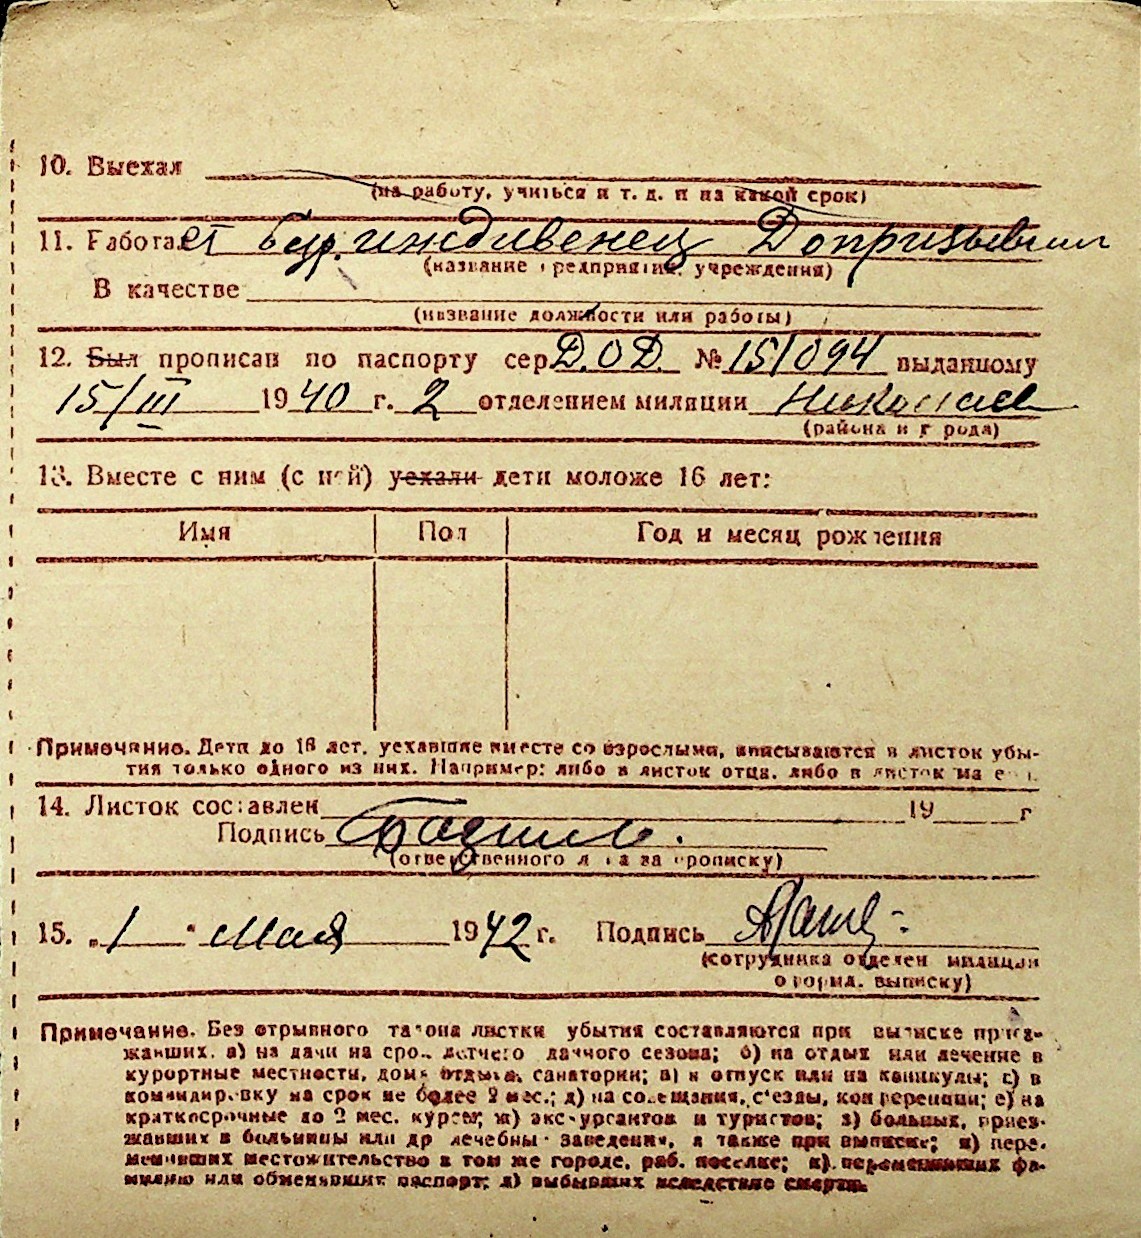 10. Выехал
(на работу, учиться и т. д. и на какой срок)
11. Работает иждивенец Допризывник
(название предприятия, учреждения)
В качестве
(название должности или работы)
12. Был прописан по паспорту сер. Д.О.Д. № 151094 выданному
15/III 1940 г. 2 отделением милиции Николаев
(района и города)
13. Вместе с ним (с ней) уехали дети моложе 16 лет:
Имя Пол Год и месяц рождения
Примечание. Дети до 16 лет, уехавшие вместе со взрослыми, вписываются в листок убы-
тия только одного из них. Например: либо в листок отца, либо в листок матери.
14. Листок составлен 19 г
Подпись
(ответственного лица за прописку)
15. „1" Мая 1942 г. Подпись
(сотрудника отделен. милиции
оформл. выписку)
Примечание. Без отрывного талона листки убытия составляются при выписке приез-
жавших: а) на дачи на срок летнего дачного сезона; б) на отдых или лечение в
курортные местности, дома отдыха, санатории; в) в отпуск или на каникулы; г) в
командировку на срок не более 2 мес.; д) на совещания, съезды, конференции; е) на
краткосрочные до 2 мес. курсы; ж) экскурсантов и туристов; з) больных, приез-
жавших в больницы или др лечебные заведения, а также при выписке; и) пере-
менивших местожительство в том же городе, раб. поселке; к) переменивших фа-
милию или обменявших паспорт; л) выбывших вследствие смерти.